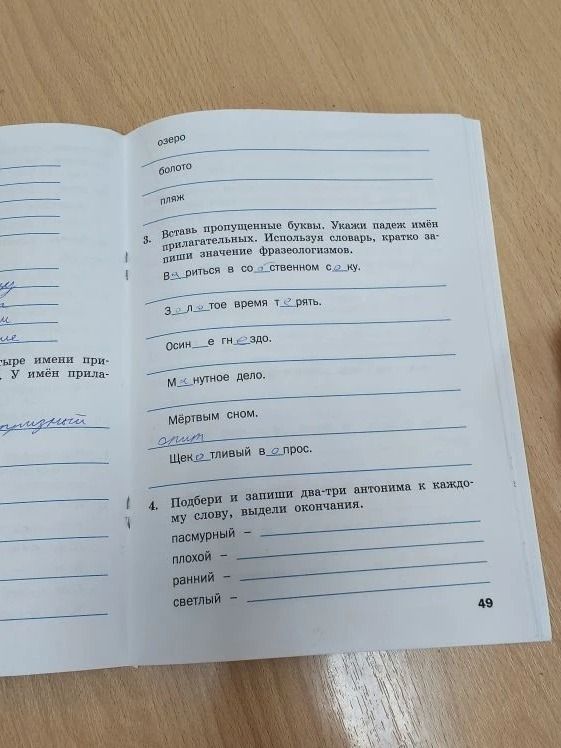 озеро
болото
пляж
3. Вставь пропущенные буквы. Укажи падеж имён
прилагательных. Используя словарь, кратко за-
пиши значение фразеологизмов.
Ва_риться в со_б_ственном с_о_ку.
З_о_л_о_тое время т_е_рять.
Осин__е гн_е_здо.
М_и_нутное дело.
Мёртвым сном.
спит
Щек_о_тливый в_о_прос.
4. Подбери и запиши два-три антонима к каждо-
му слову, выдели окончания.
пасмурный –
плохой –
ранний –
светлый –
49
тыре имени при-
. У имён прила-